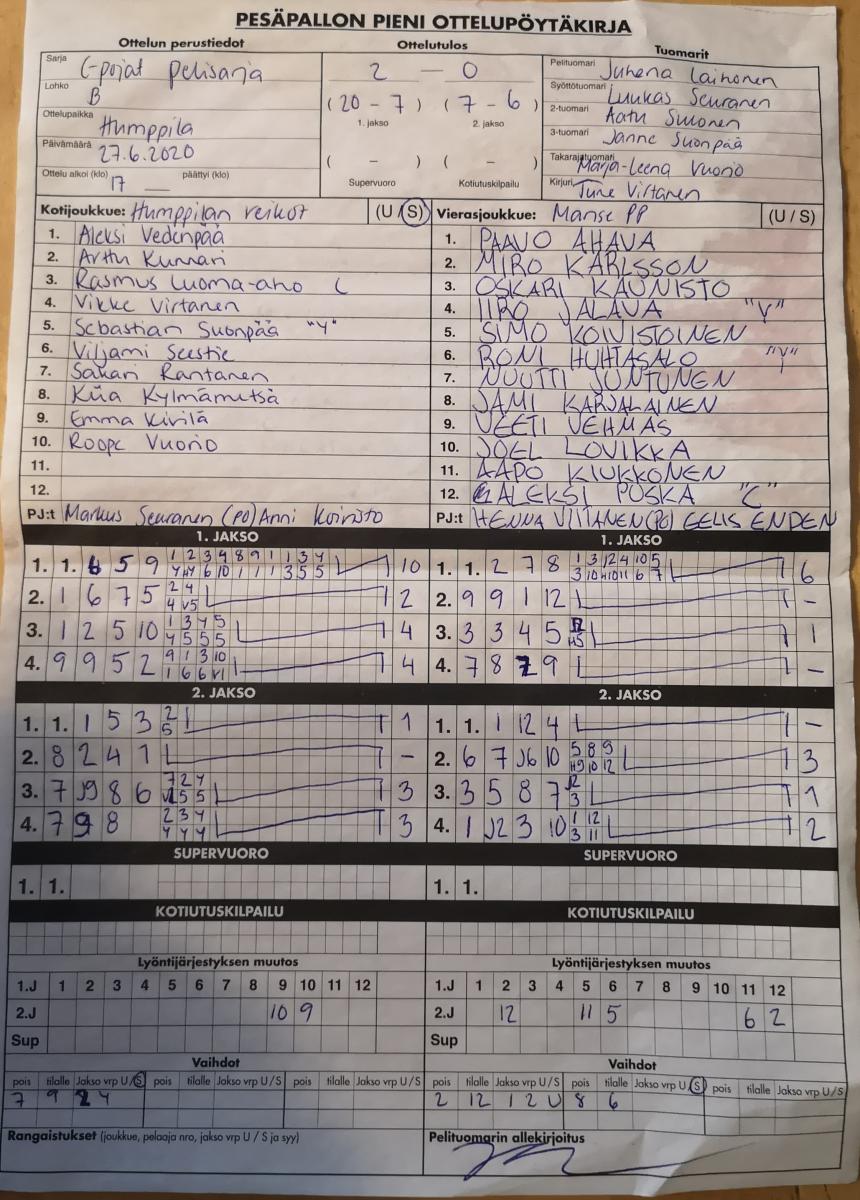 PESÄPALLON PIENI OTTELUPÖYTÄKIRJA
Ottelun perustiedot
Sarja C-pojat pelisarja
Lohko B
Ottelupaikka Humppila
Päivämäärä 27.6.2020
Ottelu alkoi (klo) 17 päättyi (klo)
Ottelutulos
2 – 0
(20 - 7) (7 - 6)
1. jakso 2. jakso
( - ) ( - )
Supervuoro Kotiutuskilpailu
Tuomarit
Pelituomari Juhena Lainonen
Syöttötuomari Luukas Seuranen
2-tuomari Aatu Suronen
3-tuomari Janne Suonpää
Takarajatuomari Marja-Leena Vuorio
Kirjuri Tune Virtanen
Kotijoukkue: Humppilan veikot (U/S)
1. Aleksi Vedenpää
2. Arttu Kunnari
3. Rasmus Luoma-aho C
4. Vikke Virtanen
5. Sebastian Suonpää "Y"
6. Viljami Seestie
7. Sakari Rantanen
8. Kiia Kylmämetsä
9. Emma Kivilä
10. Roope Vuorio
11.
12.
PJ:t Markus Seuranen (PO) Anni Koivisto
Vierasjoukkue: Manse PP (U/S)
1. PAAVO AHAVA
2. MIRO KARLSSON
3. OSKARI KAUNISTO
4. IIRO JALAVA "Y"
5. SIMO KOIVISTOINEN
6. RONI HUHTASALO "Y"
7. NUUTTI JUNTUNEN
8. JAMI KARJALAINEN
9. VEETI VEHMAS
10. JOEL LOVIKKA
11. AAPO KIUKKONEN
12. ALEKSI PUSKA "C"
PJ:t HENNA VIITANEN (PO) EELIS ENDEN
1. JAKSO
1. 1. 6 5 9 10
2. 1 6 7 5 2
3. 1 2 5 10 4
4. 9 9 5 2 4
1. JAKSO
1. 1. 2 7 8 6
2. 9 9 1 12 -
3. 3 3 4 5 1
4. 7 8 9 -
2. JAKSO
1. 1. 1 5 3 1
2. 8 2 4 1 -
3. 7 J9 8 6 3
4. 7 9 8 3
2. JAKSO
1. 1. 1 12 4 -
2. 6 7 J6 10 3
3. 3 5 8 7 1
4. 1 J2 3 10 2
SUPERVUORO
1. 1.
SUPERVUORO
1. 1.
KOTIUTUSKILPAILU
KOTIUTUSKILPAILU
Lyöntijärjestyksen muutos
1.J 1 2 3 4 5 6 7 8 9 10 11 12
2.J 10 9
Sup
Lyöntijärjestyksen muutos
1.J 1 2 3 4 5 6 7 8 9 10 11 12
2.J 12 11 5 6 2
Sup
Vaihdot
pois tilalle Jakso vrp U/S pois tilalle Jakso vrp U/S pois tilalle Jakso vrp U/S
7 9 2 4
Vaihdot
pois tilalle Jakso vrp U/S pois tilalle Jakso vrp U/S pois tilalle Jakso vrp U/S
2 12 1 2 U 8 6
Rangaistukset (joukkue, pelaaja nro, jakso vrp U / S ja syy)
Pelituomarin allekirjoitus